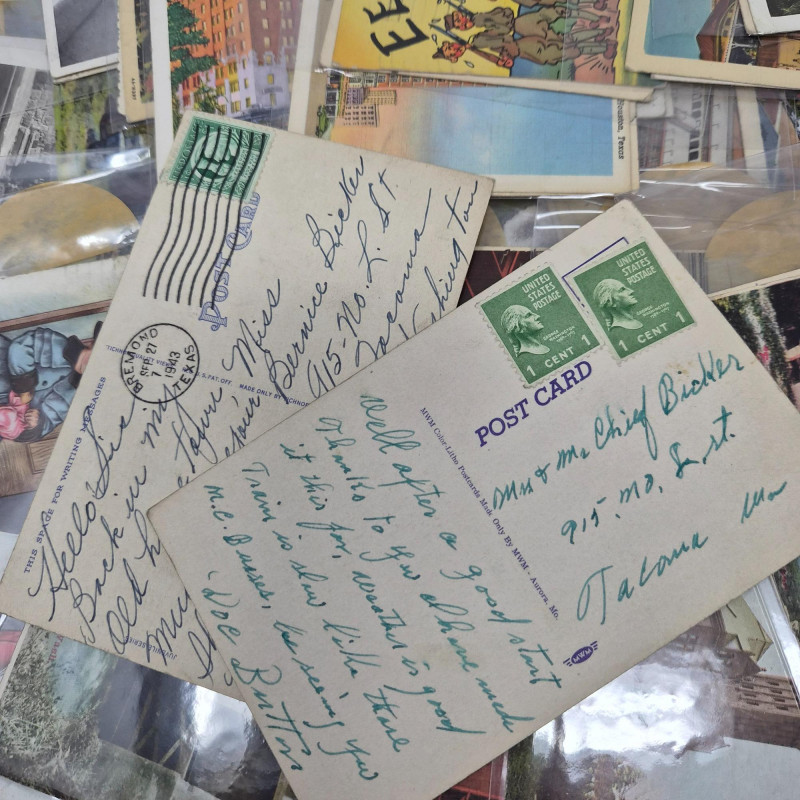 Houston, Texas
POST CARD
BREMOND
SEP 27
7
1943
TEXAS
THIS SPACE FOR WRITING MESSAGES
MADE ONLY BY
Hello Sis
Back in my
old
Miss
Bernice Bicker
915-No. L. St.
Tacoma
UNITED
STATES
POSTAGE
1 CENT 1
UNITED
STATES
POSTAGE
1 CENT 1
POST CARD
MWM Color-Litho Postcards Made Only By MWM - Aurora, Mo.
MWM
Well after a good start
Thanks to you I have made
it this far, weather is good
Train is slow like those
M.C. Busses, be seeing you
Doc Button
Chief Bicker
915. No. L. st.
Tacoma Wn